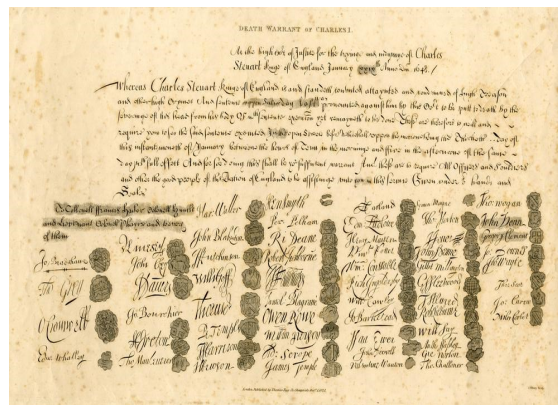 DEATH WARRANT OF CHARLES I.
At the high Co^rt of Justice for the tryinge and iudginge of Charles
Steuart Kinge of England January xxix^th Anno Dni 1648./
Whereas Charles Steuart Kinge of England is and standeth convicted attaynted and condemned of high Treason
and other high Crymes And sentence uppon Saturday last was pronounced against him by this Co^rt to be putt to death by the
severinge of his head from his body Of w^ch sentence execuc͠on yet remayneth to be done These are therefore to will and
require you to see the said sentence executed In the open Streete before Whitehall uppon the morrowe being the Thirtieth day of
this instante moneth of January betweene the houres of Tenn in the morninge and Five in the afternoone of the same
day w^th full effect And for soe doing this shall be yo^r sufficient warrant And these are to require All Officers and Souldiers
and other the good people of this Nation of England to be assistinge unto you in this service Given under o^r hands and
Seales
To Collonell Francis Hacker Colonell Huncks
and Lieutenant Colonell Phayre and to every
of them
Jo. Bradshawe
Tho Grey
O Cromwell
Edw Whalley
M Livesey
John Okey
J Dauers
Jo Bourchier
H Ireton
Tho Mauleverer
Har Waller
John Blakiston
J Hutchinson
Willi Goff
Tho Pride
P Temple
T Harrison
J Hewson
Hen Smyth
Per Pelham
Ri Deane
Robert Tichborne
H Edwardes
Daniel Blagrave
Owen Rowe
Willm Purefoy
Ad Scrope
James Temple
A Garland
Edm Ludlowe
Henry Marten
Vinct Potter
Wm Constable
Rich Ingoldesby
Will Cawley
Jo Barkestead
Isaa Ewer
John Dixwell
Valentine Wauton
Symon Mayne
Tho Horton
J Jones
John Moore
Gilbt Millington
G Fleetwood
J Alured
Robt Lilburne
Will Say
Anth Stapley
Gre Norton
Tho Challoner
Tho Wogan
John Venn
Gregory Clement
Jo Downes
Tho Wayte
Tho Scot
Jo Carew
Miles Corbet